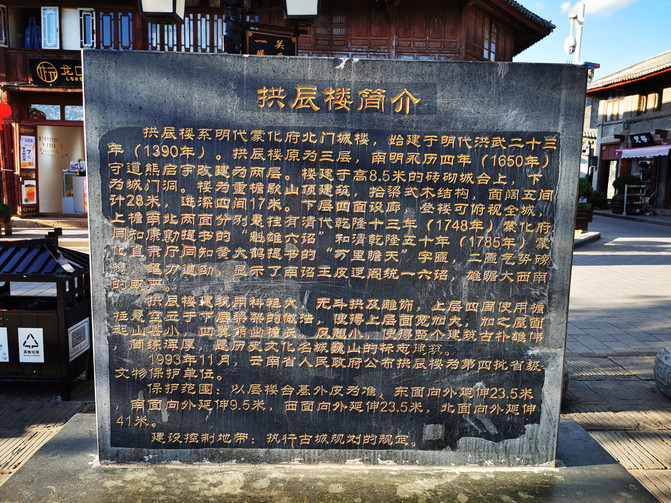 拱辰楼简介
拱辰楼系明代蒙化府北门城楼，始建于明代洪武二十三
年（1390年）。拱辰楼原为三层，南明永历四年（1650年）
守道熊启宇改建为两层。楼建于高8.5米的砖砌城台上，下
为城门洞。楼为重檐歇山顶建筑，抬梁式木结构，面阔五间
计28米，进深四间17米。下层四面设廊，登楼可俯视全城，
上檐南北两面分别悬挂有清代乾隆十三年（1748年）蒙化府
同知康勷提书的“魁雄六诏”和清乾隆五十年（1785年）蒙
化直隶厅同知黄大鹤提书的“万里瞻天”字匾，二匾气势磅
礴，笔力遒劲，显示了南诏王皮逻阁统一六诏，雄瞻大西南
的威严。
拱辰楼建筑用料粗大，无斗拱及雕饰，上层四周使用檐
柱悬空立于下层梁架的做法，使得上层面宽加大，加之屋面
延
山
，使得整个建筑古朴雄伟
，简练浑厚，是历史文化名城巍山的标志建筑。
1993年11月，云南省人民政府公布拱辰楼为第四批省级
文物保护单位。
保护范围：以层楼台基外皮为准、东面向外延伸23.5米
，南面向外延伸9.5米，西面向外延伸23.5米，北面向外延伸
41米。
建设控制地带：执行古城规划的规定。